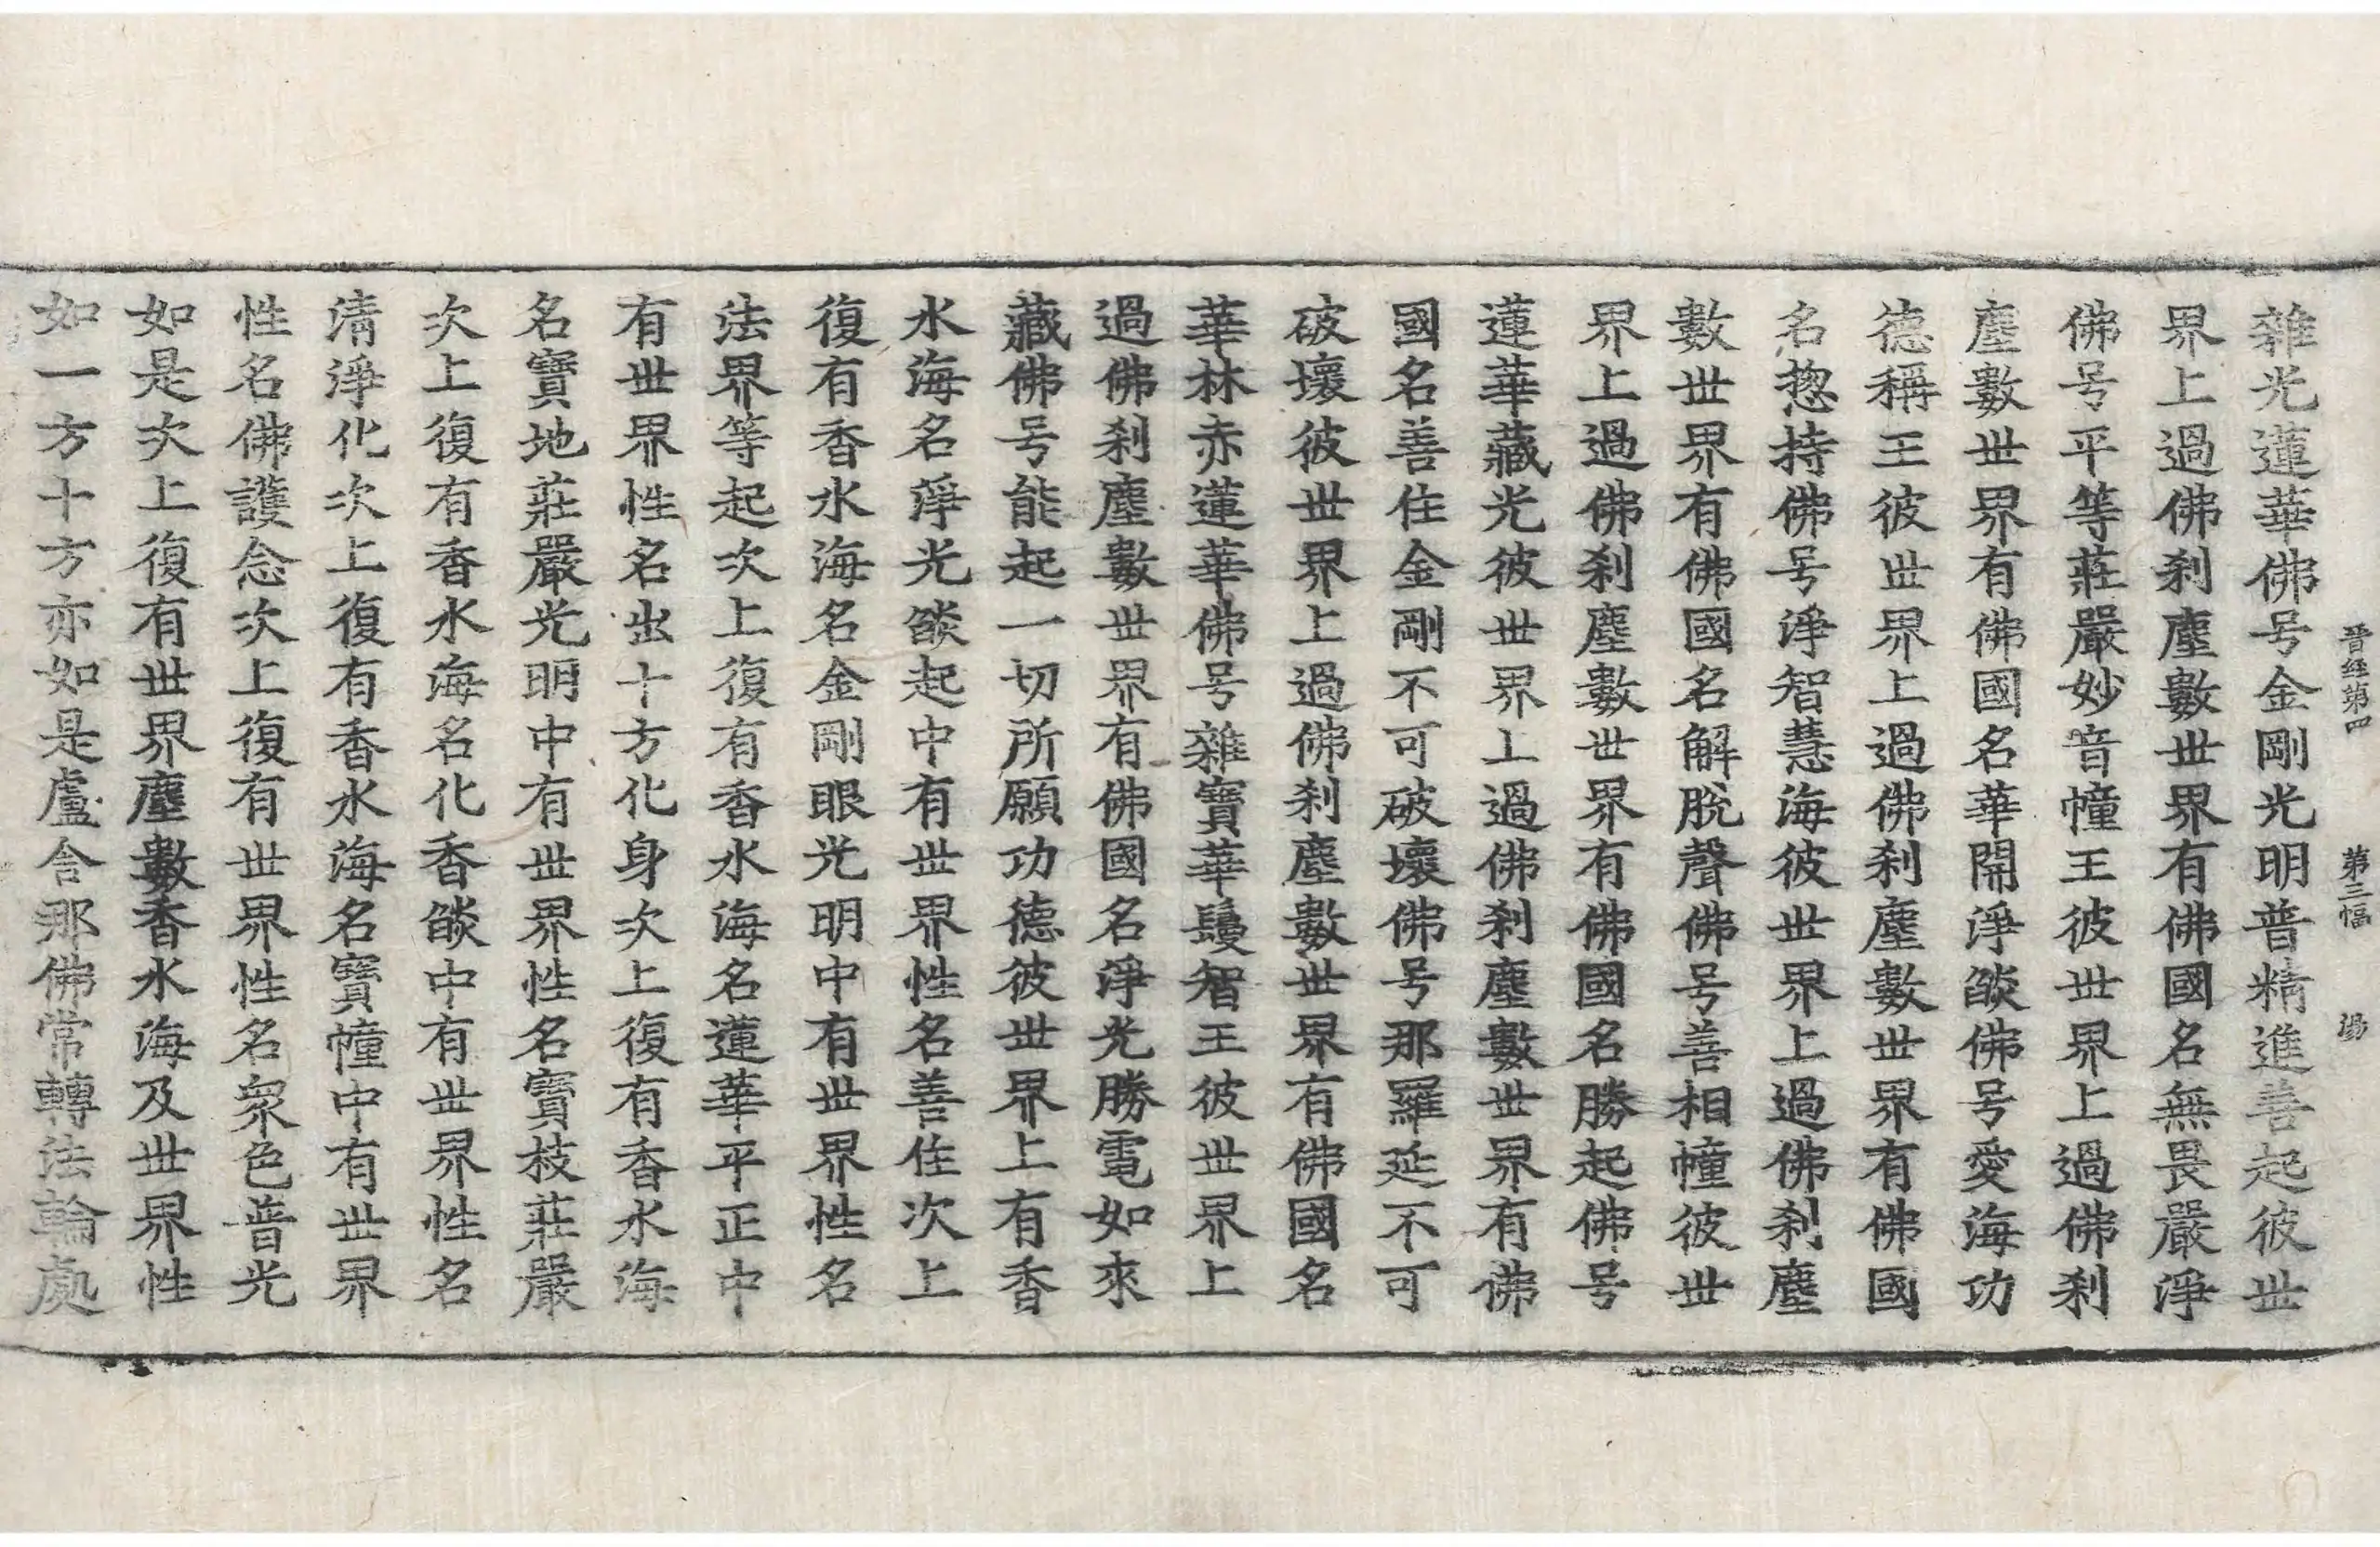 晉經第四 第三幅 湯
雜光蓮華佛号金剛光明普精進善起彼世
界上過佛刹塵數世界有佛國名無畏嚴淨
佛号平等莊嚴妙音幢王彼世界上過佛刹
塵數世界有佛國名華開淨燄佛号愛海功
德稱王彼世界上過佛刹塵數世界有佛國
名惣持佛号淨智慧海彼世界上過佛刹塵
數世界有佛國名解脫聲佛号善相幢彼世
界上過佛刹塵數世界有佛國名勝起佛号
蓮華藏光彼世界上過佛刹塵數世界有佛
國名善住金剛不可破壞佛号那羅延不可
破壞彼世界上過佛刹塵數世界有佛國名
華林赤蓮華佛号雜寶華鬘智王彼世界上
過佛刹塵數世界有佛國名淨光勝電如來
藏佛号能起一切所願功德彼世界上有香
水海名淨光燄起中有世界性名善住次上
復有香水海名金剛眼光明中有世界性名
法界等起次上復有香水海名蓮華平正中
有世界性名出十方化身次上復有香水海
名寶地莊嚴光明中有世界性名寶枝莊嚴
次上復有香水海名化香燄中有世界性名
清淨化次上復有香水海名寶幢中有世界
性名佛護念次上復有世界性名衆色普光
如是次上復有世界塵數香水海及世界性
如一方十方亦如是盧舍那佛常轉法輪處